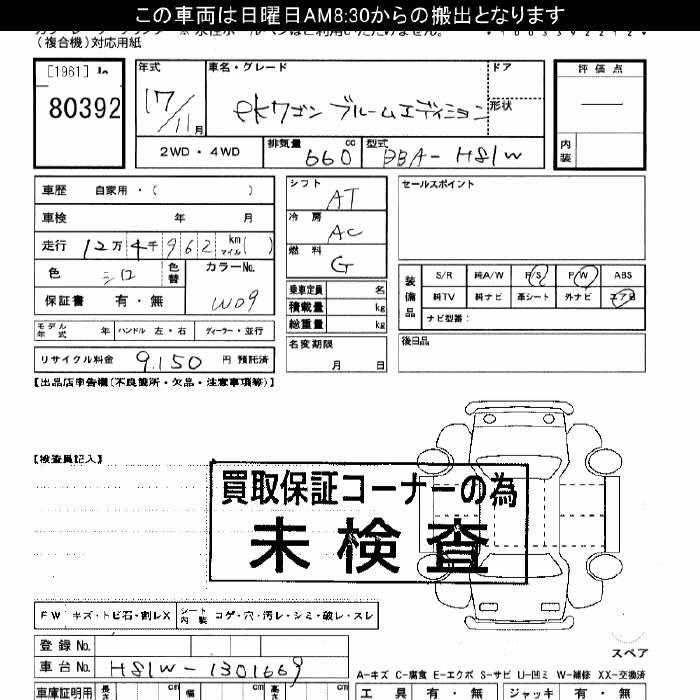 この車両は日曜日AM8:30からの搬出となります
(複合機)対応用紙
[1961]
80392
年式
17/11月
車名・グレード
ekワゴン ブルームエディション
ドア
形状
評価点
―
内装
2WD・4WD
排気量 660 cc
型式 DBA-H81W
車歴 自家用・( )
車検 年 月
走行 12万4千962 km マイル( )
色 シロ 色替
カラーNo. W09
保証書 有・無
モデル年式 年 ハンドル 左・右 ディーラー・並行
リサイクル料金 9,150 円 預託済
シフト AT
冷房 AC
燃料 G
乗車定員 名
積載量 kg
総重量 kg
名変期限 月 日
セールスポイント
装備品
S/R 純A/W P/S P/W ABS
純TV 純ナビ 革シート 外ナビ エアB
ナビ型番:
後日品
【出品店申告欄(不良箇所・欠品・注意事項等)】
【検査員記入】
買取保証コーナーの為
未検査
FW キズ・トビ石・割レX
シート内装 コゲ・穴・汚レ・シミ・破レ・スレ
登録No.
車台No. H81W-1301669
スペア
A-キズ C-腐食 E-エクボ S-サビ U-凹ミ W-補修 XX-交換済
車庫証明用 長さ cm 幅 cm 高さ cm
工具 有・無 ジャッキ 有・無